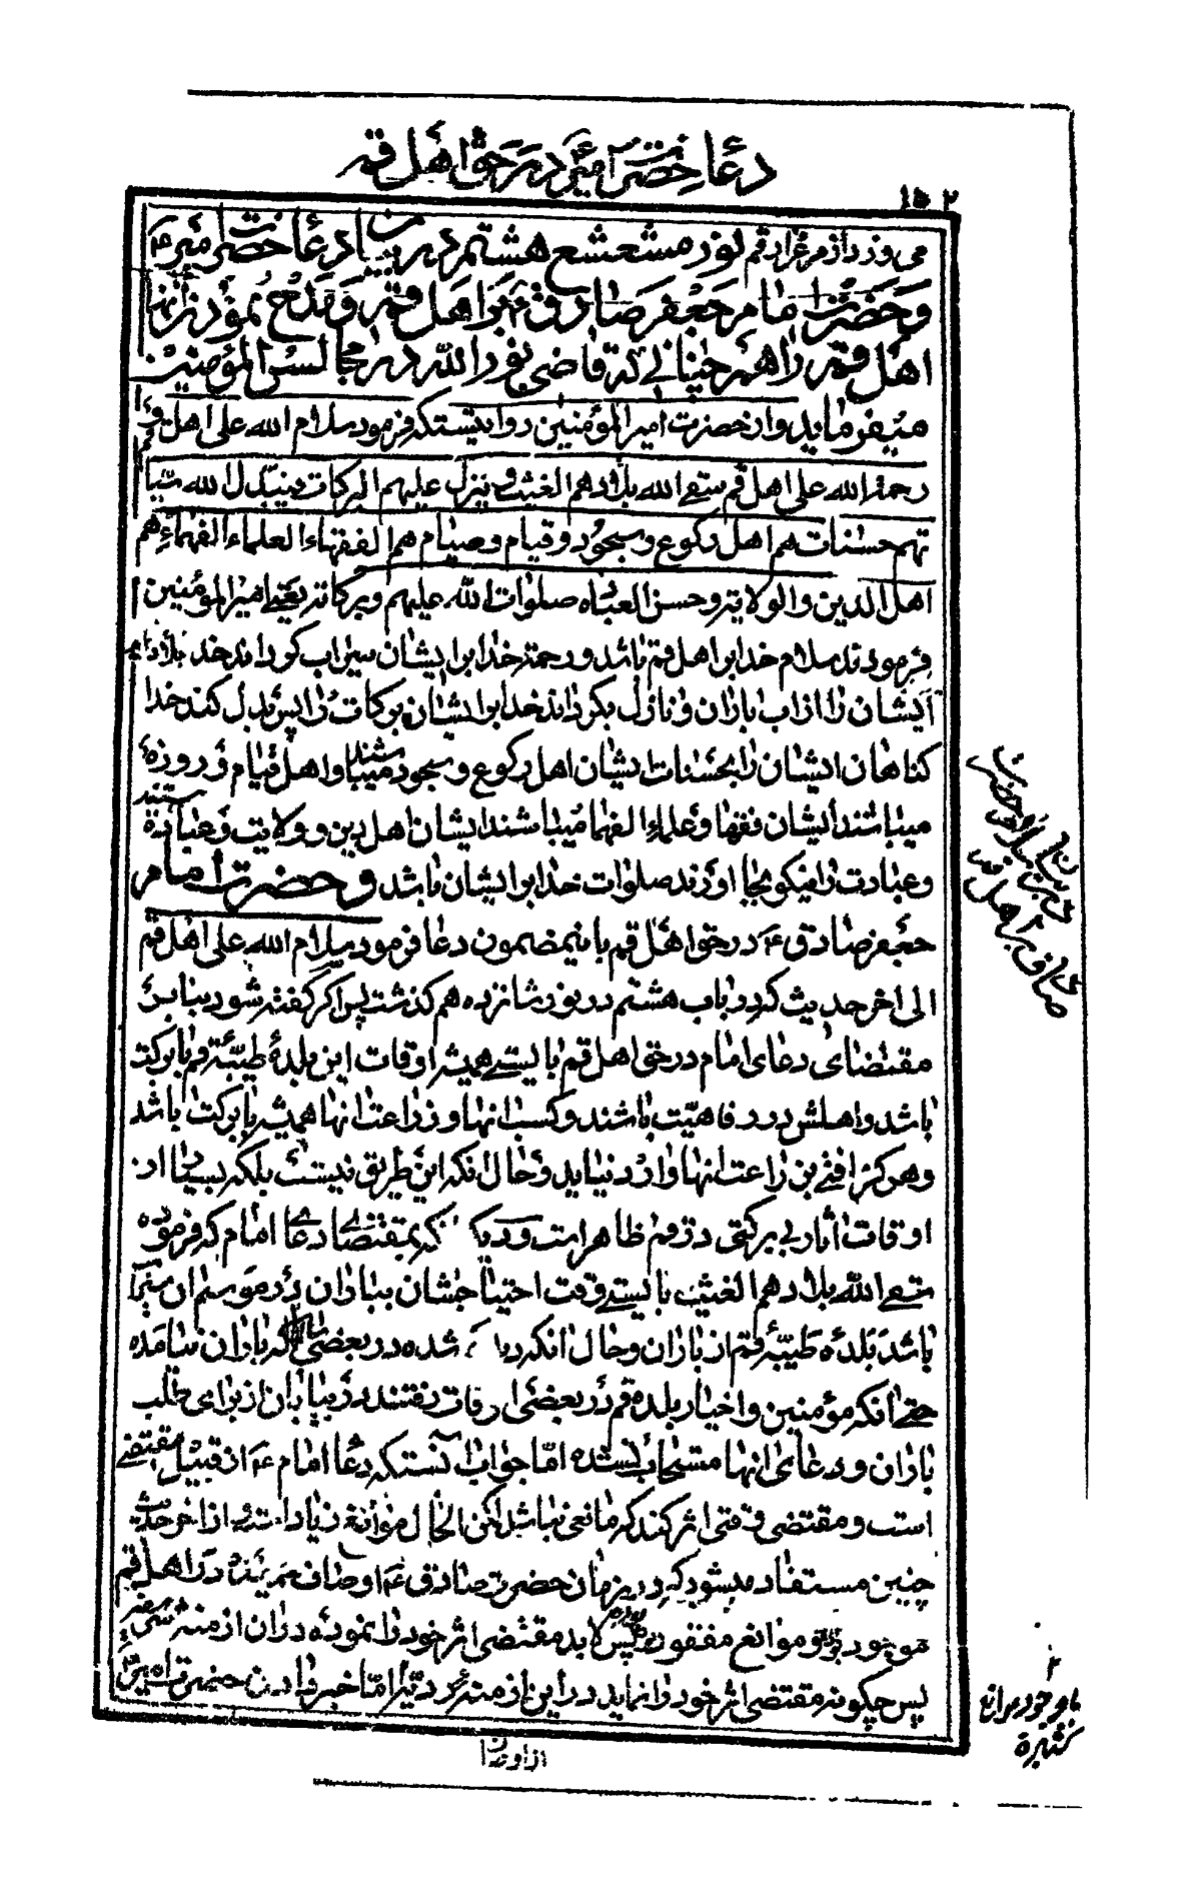 دعاء حضرت امیر در حق اهل قم
۱۵۲
می وزد از مرغزار قم نور مشعشع هشتم در بیان دعاء حضرت امیر ع
و حضرت امام جعفر صادق ع بر اهل قم و مدح نمودن آنها
اهل قم را هم چنانی که قاضی نورالله در مجالس المؤمنین
میفرماید و از حضرت امیرالمؤمنین روایتستکه فرمود سلام الله علی اهل قم و
رحمة الله علی اهل قم سقی الله بلادهم الغیث و ینزل علیهم البرکات فیبدل الله سیئا
تهم حسنات هم اهل رکوع و سجود و قیام و صیام هم الفقهاء العلماء الفهماء هم
اهل الدین والولایة و حسن العباده صلوات الله علیهم و برکاته یعنی امیرالمؤمنین
فرمودند سلام خدا بر اهل قم باشد و رحمة خدا بر ایشان سیراب گرداند خدا بلادهای
ایشان را از اب باران و نازل بگرداند خدا بر ایشان برکات را پس بدل کند خدا
کناهان ایشان را بحسنات ایشان اهل رکوع و سجود میباشند و اهل قیام و روزه
میباشند ایشان فقها و علماء الفهما میباشند ایشان اهل دین و ولایت
و عبادت را نیکو بجا اورند صلوات خدا بر ایشان باشد و حضرت امام
جعفر صادق ع در حق اهل قم باینمضمون دعا فرمود سلام الله علی اهل قم
الی اخر حدیث که در باب هشتم در نور شانزدهم گذشت پس اگر گفته شود بنابر
مقتضای دعای امام در حق اهل قم بایستی همیشه اوقات این بلدهٔ طیّبهٔ قم بابرکت
باشد و اهلش در رفاهیّت باشند و کسب انها و زراعت انها همیشه بابرکت باشد
و هرگز افتی بزراعت انها وارد نیاید و حال انکه این طریق نیست بلکه بسیاری از
اوقات اثار بی برکتی در قم ظاهر است و دیگر انکه بمقتضای دعای امام که فرموده
سقی الله بلادهم الغیث بایستی وقت احتیاجشان بباران در موسم ان
باشد بلده طیّبهٔ قم از باران و حال انکه دیده شده در بعضی سالها که باران نیامده
حتی انکه مؤمنین و اخیار بلده قم در بعضی اوقات رفتند در بیابان از برای طلب
باران و دعای انها مستجاب نشده امّا جواب انستکه دعا امام ع از قبیل مقتضی
است و مقتضی وقتی اثر کند که مانعی نباشد لکن الحال موانع زیاد است و از اخر حدیث
چنین مستفاد میشود که در زمان حضرت صادق ع اوصاف حمیده در اهل قم
موجود بوده و موانع مفقود بوده پس لابد مقتضی اثر خود را نموده در ان ازمنه
پس چگونه مقتضی اثر خود را نماید در این ازمنه
از اوردن
صادق بر اهل قم
با وجود موانع
کثیره